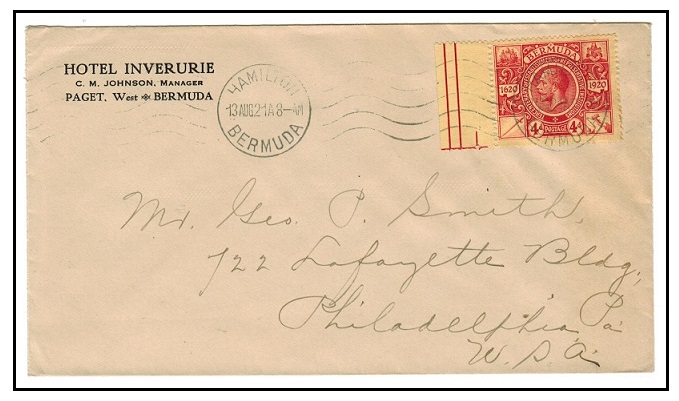 HOTEL INVERURIE
C. M. JOHNSON, MANAGER
PAGET, West BERMUDA
HAMILTON
13 AUG 21 A 8-AM
BERMUDA
BERMUDA
1620 1920
4d POSTAGE 4d
Mr. Geo. P. Smith,
722 Lafayette Bldg,
Philadelphia Pa
U.S.A.